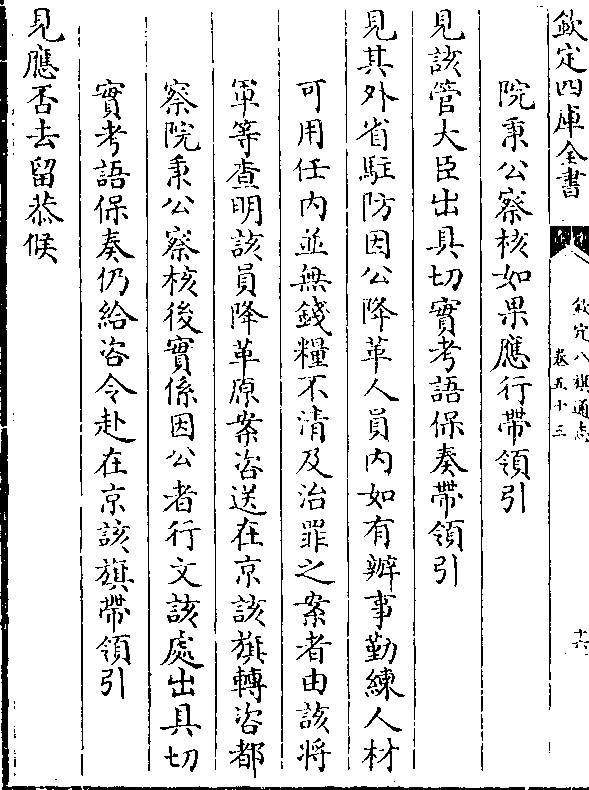 欽定四庫全書
欽定八旗通志
卷五十三
十六
院秉公察核如果應行帶領引
見該管大臣出具切實考語保奏帶領引
見其外省駐防因公降革人員內如有辦事勤練人材
可用任內並無錢糧不清及治罪之案者由該將
軍等查明該員降革原案咨送在京該旗轉咨都
察院秉公察核後實係因公者行文該處出具切
實考語保奏仍給咨令赴在京該旗帶領引
見應否去留恭候